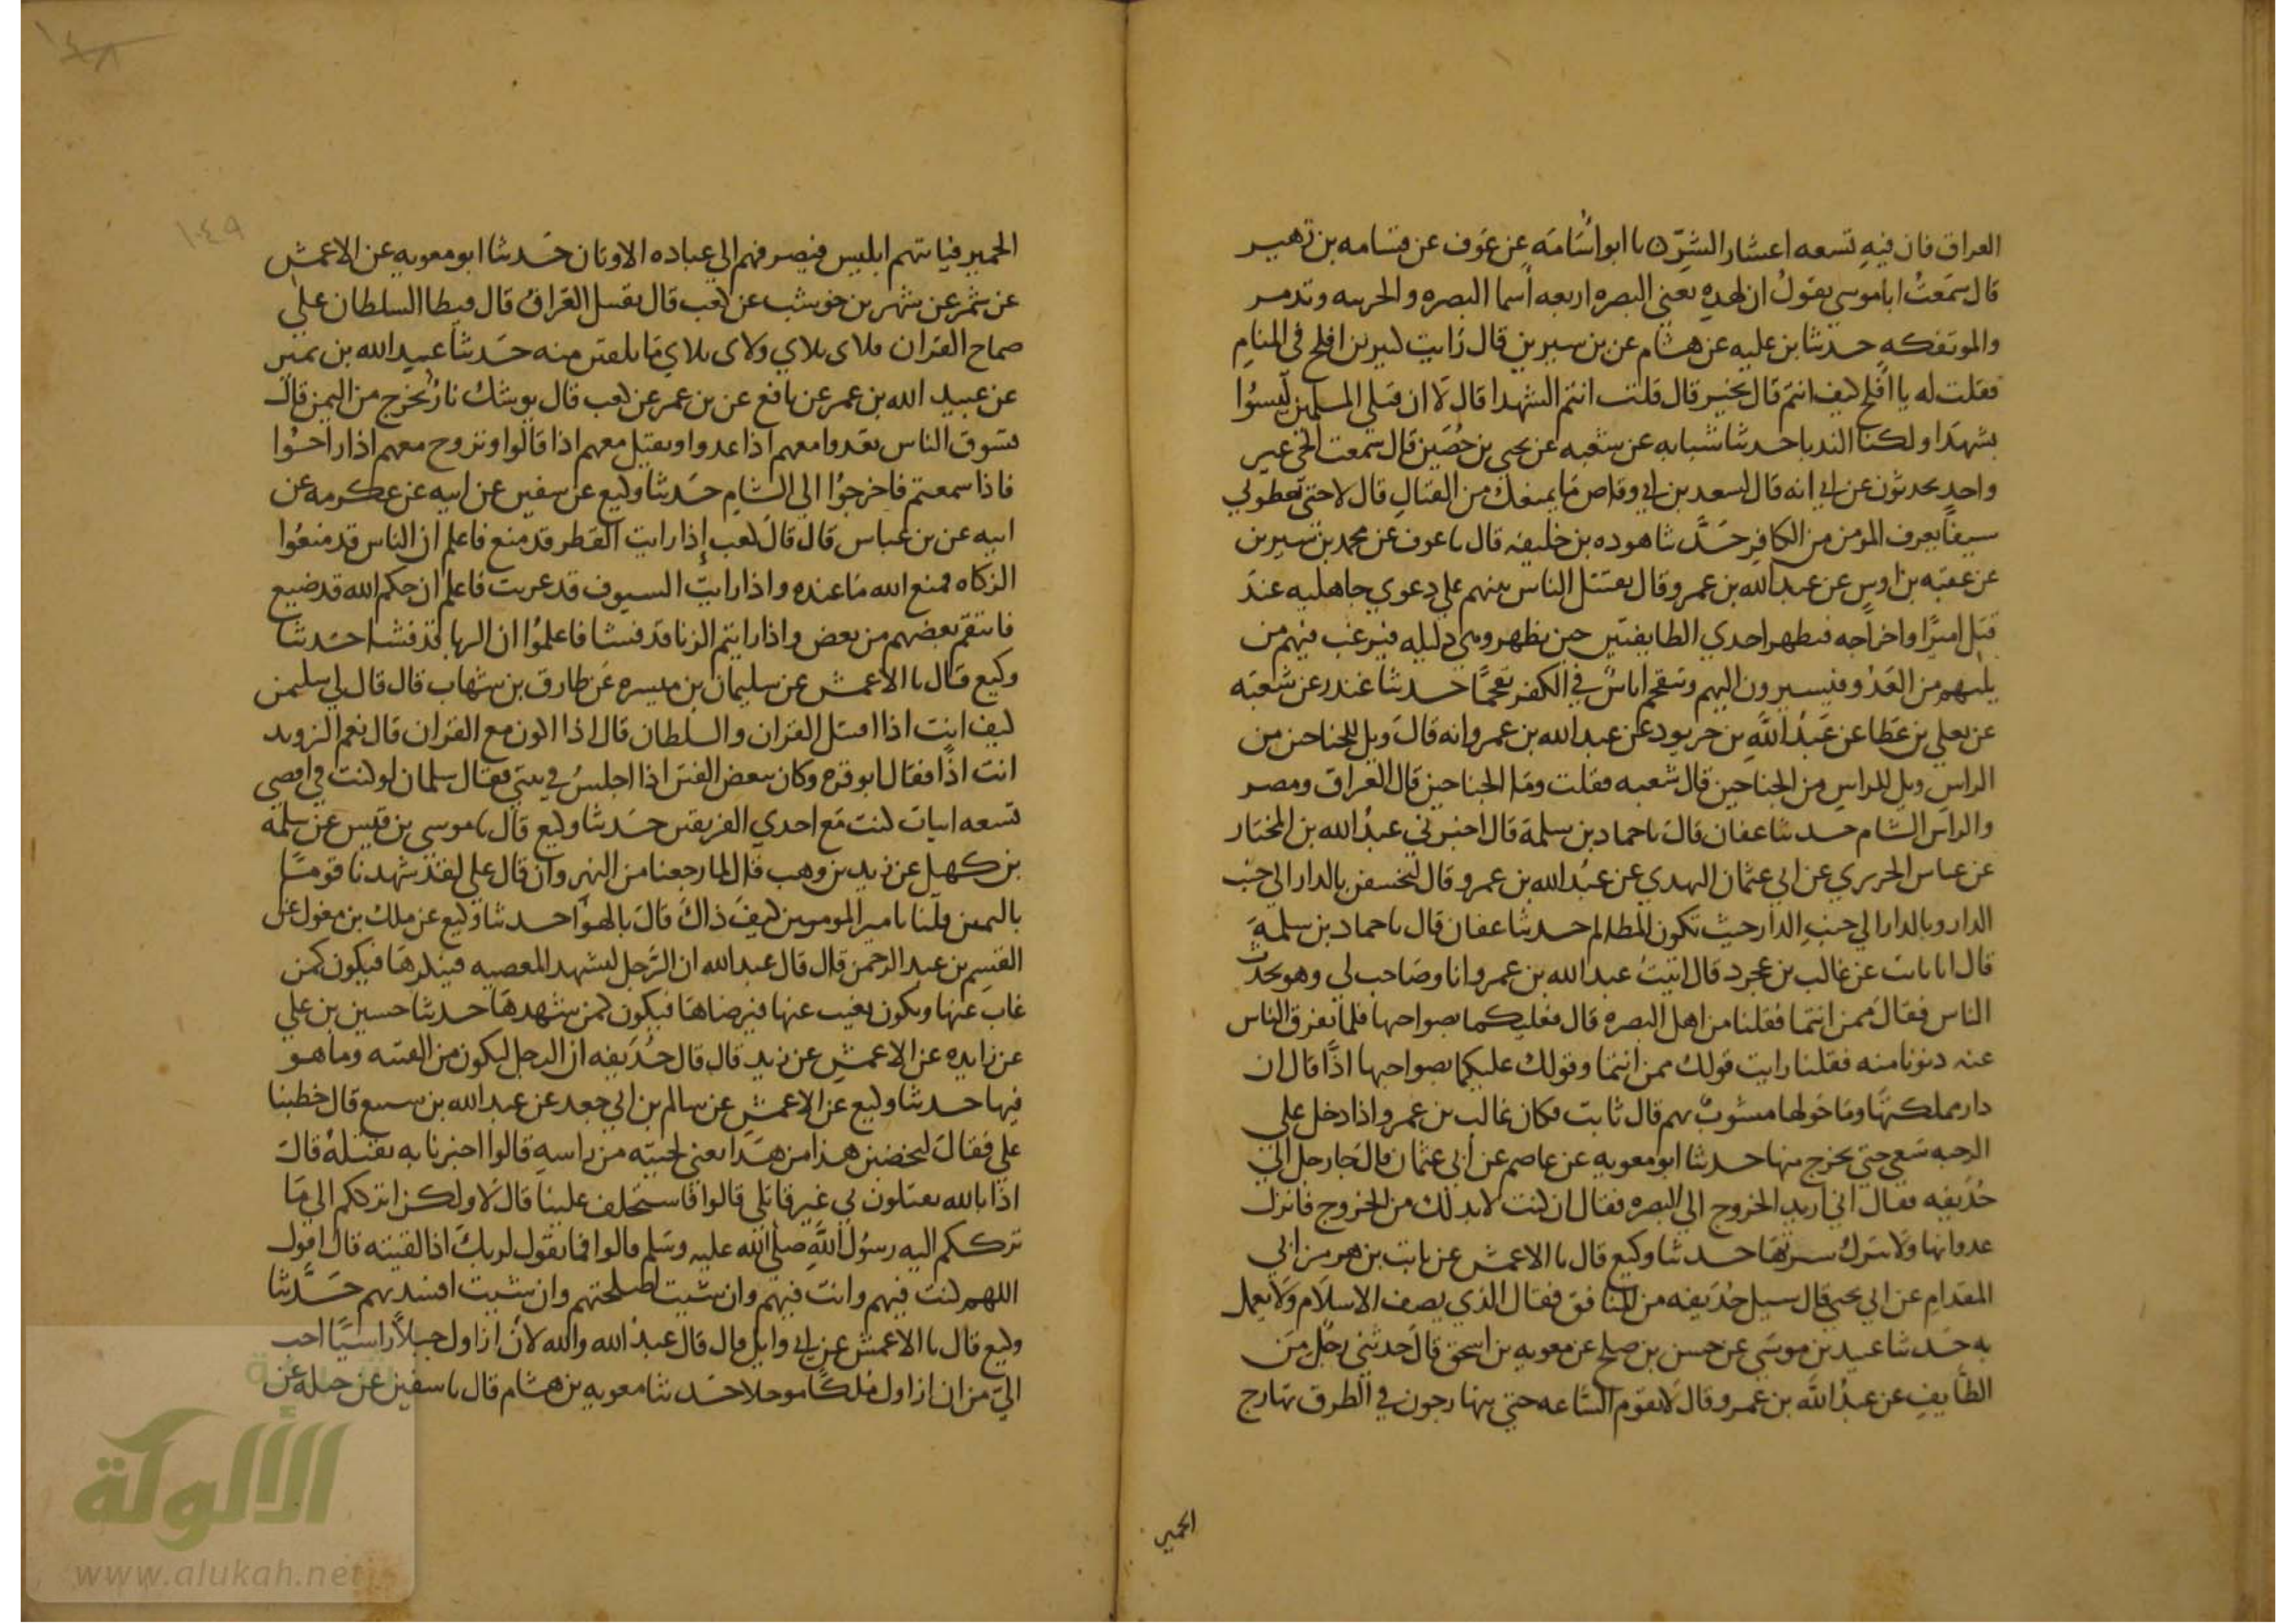 العراق فان فيه تسعه اعشار الشر ن نا ابو اسامه عن عوف عن قسامه بن زهير
قال سمعت ابا موسي يقول ان لهذه يعني البصره اربعه اسما البصره والخريبه وتدمر
والموتفكه حدثنا بن عليه عن هشام عن بن سيرين قال رايت كثير بن افلح في المنام
فقلت له يا افلح كيف انتم قال بخير قال قلت انتم الشهدا قال لا ان قتلي المسلمين ليسوا
بشهدا ولكنا الندبا حدثنا شبابه عن شعبه عن يحيي بن حصين قال سمعت الحي غير
واحد يحدثون عن ابي انه قال لسعد بن ابي وقاص ما يمنعك من القتال قال لا حتي تعطوني
سيفا يعرف المومن من الكافر حدثنا هوده بن خليفه قال نا عوف عن محمد بن سيرين
عن عقبه بن اوس عن عبد الله بن عمرو قال يقتتل الناس بينهم علي دعوي جاهليه عند
قتل امير او اخراجه فيظهر احدي الطايفتين حين يظهر وهي ذليله فيرغب فيهم من
يليهم من العدو فيسيرون اليهم وتتقحم اناس في الكفر تقحما حدثنا غندر عن شعبه
عن يعلي بن عطا عن عبد الله بن خربود عن عبد الله بن عمرو انه قال ويل للجناحين من
الراس ويل للراس من الجناحين قال شعبه فقلت وما الجناحين قال العراق ومصر
والراس الشام حدثنا عفان قال نا حماد بن سلمة قال اخبرني عبد الله بن المختار
عن عباس الجريري عن ابي عثمان النهدي عن عبد الله بن عمرو قال ليخسفن بالدار الي جنب
الدار وبالدار الي جنب الدار حيث تكون المظالم حدثنا عفان قال نا حماد بن سلمة
قال انا ثابت عن غالب بن عجرد قال اتيت عبد الله بن عمرو انا وصاحب لي وهو يحدث
الناس فقال ممن انتما فقلنا من اهل البصره قال فعليكما بضواحيها فلما تفرق الناس
عنه دنونا منه فقلنا رايت قولك ممن انتما وقولك عليكما بضواحيها اذا قال ان
دار مملكتها وما حولها مشوب بهم قال ثابت فكان غالب بن عمرو اذا دخل علي
الرحبه سعي حتي يخرج منها حدثنا ابو معويه عن عاصم عن ابي عثمان قال جا رجل الي
حذيفه فقال اني اريد الخروج الي البصره فقال ان كنت لا بد لك من الخروج فانزل
عدواتها ولا تنزل سرتها حدثنا وكيع قال نا الاعمش عن ثابت بن هرمز ابي
المقدام عن ابي يحيي قال سيل حذيفه من المنافق فقال الذي يصف الاسلام ولا يعمل
به حدثنا عبيد بن موسي عن حسن بن صالح عن معويه بن اسحق قال حدثني رجل من
الطايف عن عبد الله بن عمرو قال لا تقوم الساعه حتي يتهارجون في الطرق تهارج
الحمير
١٤٨
١٤٩
الحمير فياتيهم ابليس فيصرفهم الي عباده الاوثان حدثنا ابو معويه عن الاعمش
عن شمر عن شهر بن حوشب عن كعب قال يقتتل القران قال فيطا السلطان علي
صماخ القران فلاي بلاي ولاي بلاي ما يلفتن منه حدثنا عبيد الله بن نمير
عن عبيد الله بن عمر عن نافع عن بن عمر عن كعب قال يوشك نار تخرج من اليمن قال
تسوق الناس تغدوا معهم اذا غدوا وتقيل معهم اذا قالوا وتروح معهم اذا راحوا
فاذا سمعتم فاخرجوا الي الشام حدثنا وكيع عن سفين عن ابيه عن عكرمه عن
ابيه عن بن عباس قال قال كعب إذا رايت القطر قد منع فاعلم ان الناس قد منعوا
الزكاه فمنع الله ما عنده واذا رايت السيوف قد عريت فاعلم ان حكم الله قد ضيع
فانتقم بعضهم من بعض واذا رايتم الزنا قد فشا فاعلموا ان الربا قد فشا حدثنا
وكيع قال نا الاعمش عن سليمان بن ميسره عن طارق بن شهاب قال قال لي سليمن
كيف انت اذا اقتتل القران والسلطان قال اذا اكون مع القران قال نعم الزويد
انت اذا فقال ابو قره وكان يبغض الفتن اذا اجلس في بيتي فقال سلمان لو كنت في اقصي
تسعه ابيات لكنت مع احدي الفريقين حدثنا وكيع قال نا موسي بن قيس عن سلمه
بن كهيل عن زيد بن وهب قال لما رجعنا من النهروان قال علي لقد شهدنا قوم
باليمن قلنا يا امير المومنين كيف ذاك قال بالهوا حدثنا وكيع عن ملك بن مغول عن
القسم بن عبد الرحمن قال قال عبد الله ان الرجل ليشهد المعصيه فينكرها فيكون كمن
غاب عنها ويكون يغيب عنها فيرضاها فيكون كمن شهدها حدثنا حسين بن علي
عن زايده عن الاعمش عن زيد قال قال حذيفه ان الرجل ليكون من الفتنه وما هو
فيها حدثنا وكيع عن الاعمش عن سالم بن ابي جعد عن عبد الله بن سبيع قال خطبنا
علي فقال لتخضبن هذا من هذا يعني لحيته من راسه قالوا اخبرنا به نقتله قال
اذا بالله تقتلون بي غير قاتلي قالوا فاستخلف علينا قال لا ولكن اترككم الي ما
ترككم اليه رسول الله صلي الله عليه وسلم قالوا فما تقول لربك اذا لقيته قال اقول
اللهم كنت فيهم وانت فيهم وان شيت اصلحتهم وان شيت افسدتهم حدثنا
وكيع قال نا الاعمش عن ابي وايل قال قال عبد الله والله لان ازاول جبلا راسيا احب
الي من ان ازاول ملكا موجلا حدثنا معويه بن هشام قال نا سفين عن جبله عن
الألوكة
www.alukah.net